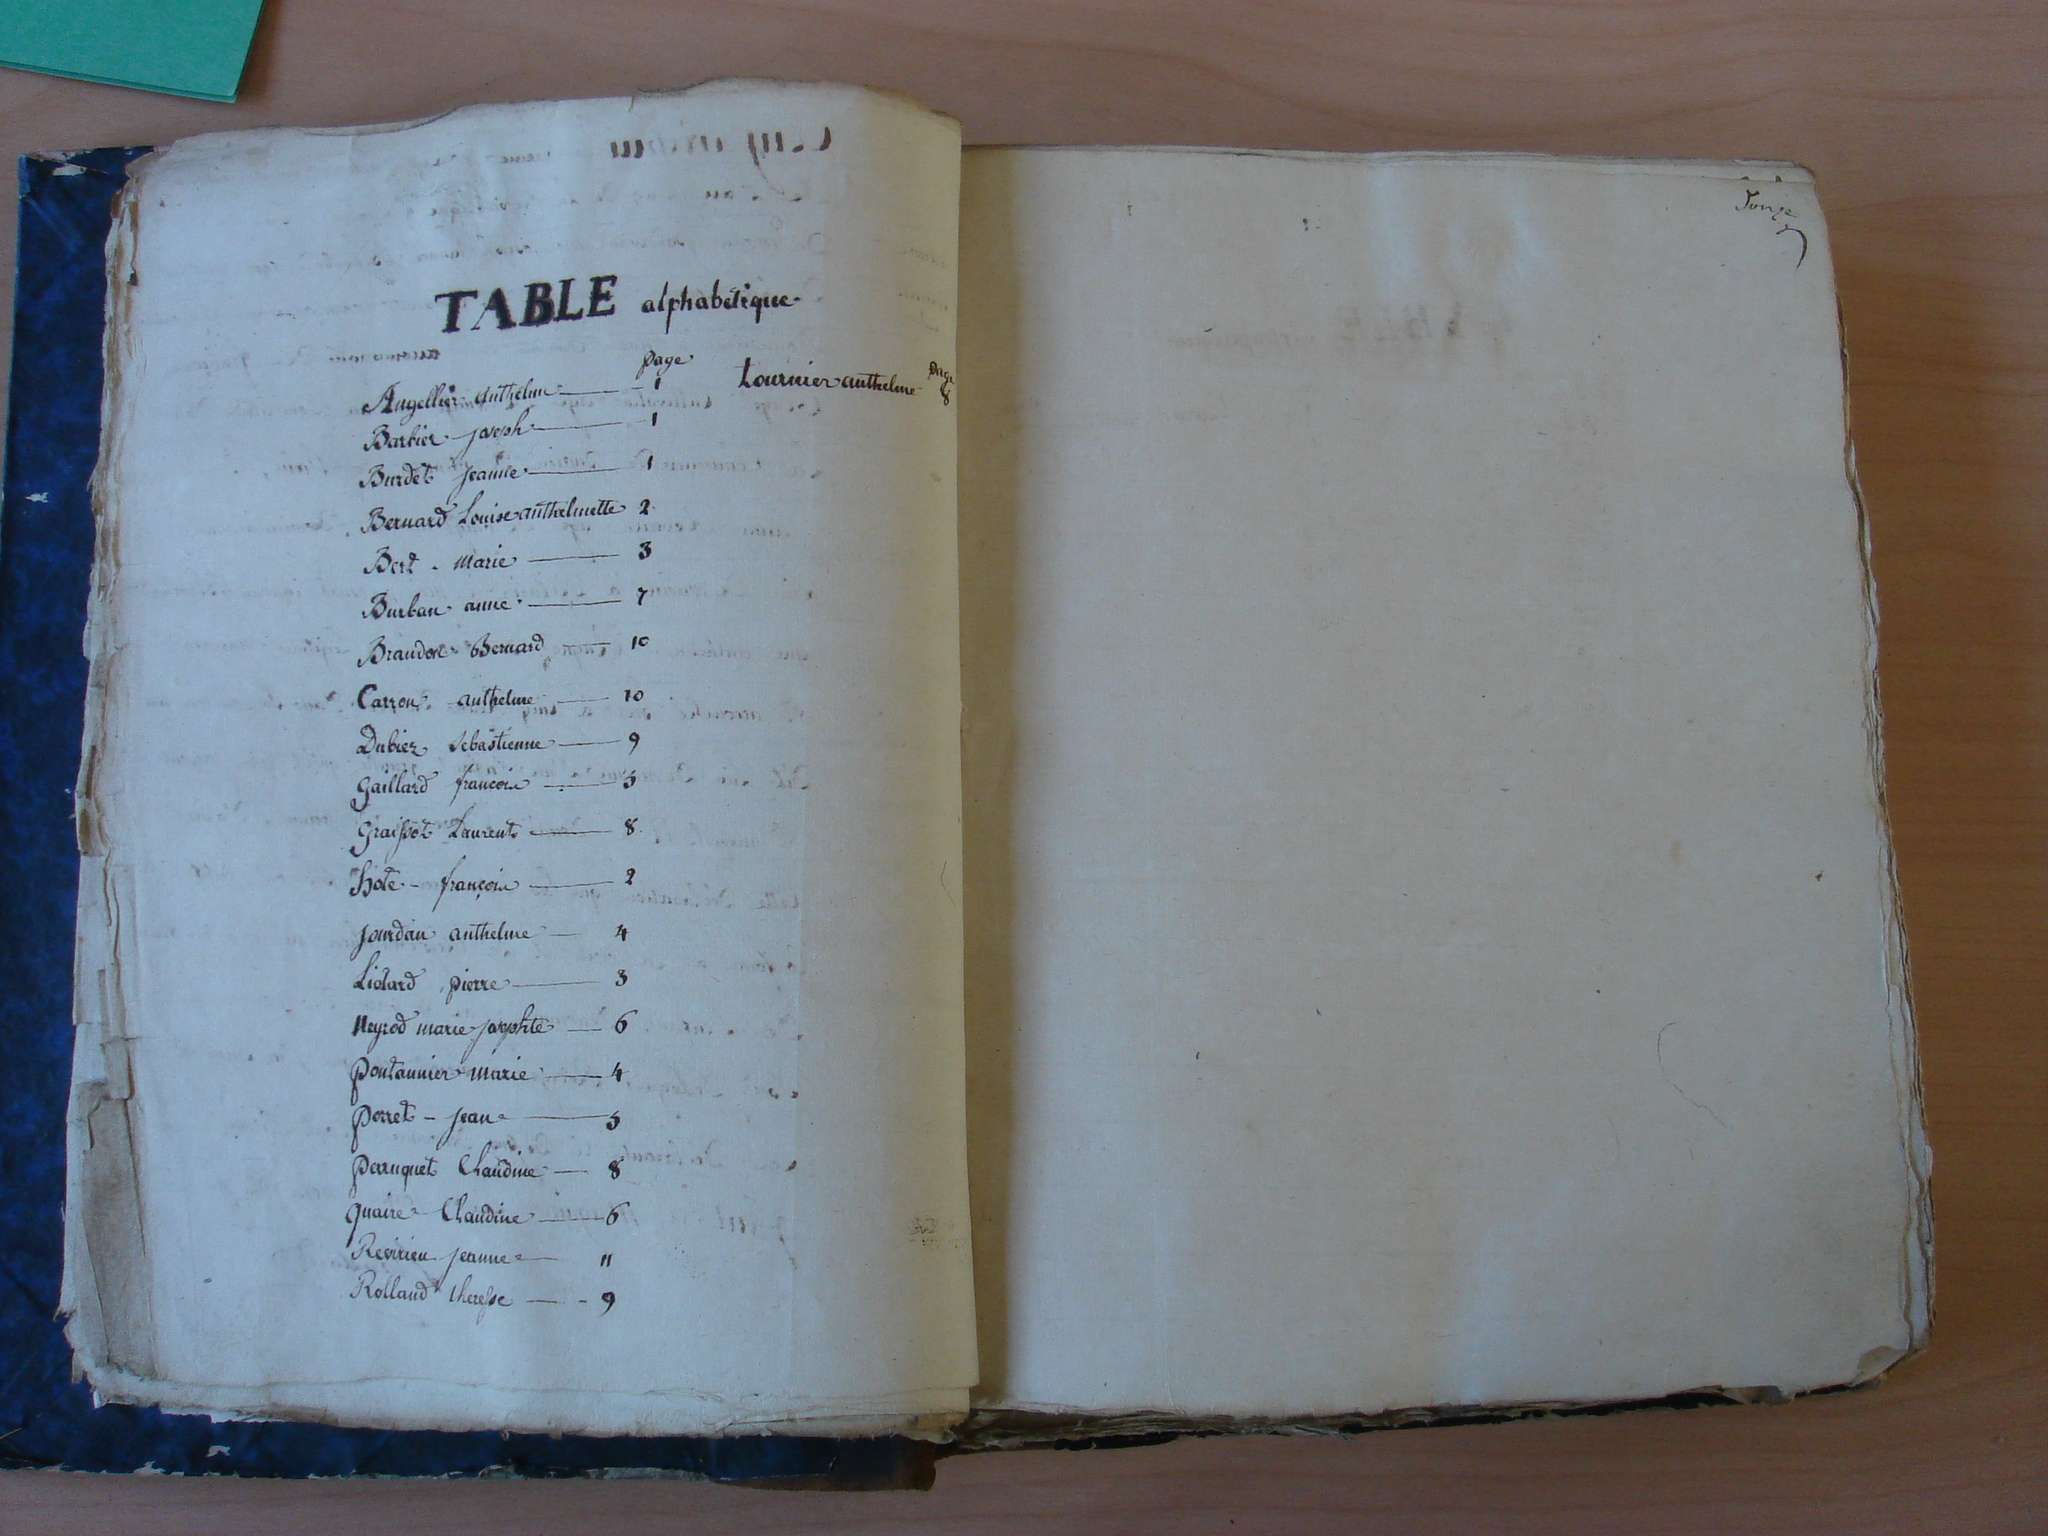 TABLE alphabétique
page
Augellier anthelme 1
Barbier joseph 1
Burdet jeanne 1
Bernard Louise anthelmette 2
Bert marie 3
Burban anne 7
Brandon Bernard 10
Carron anthelme 10
Dubiez sebastienne 9
Gaillard françois 5
Graissot Laurent 8
Hote françois 2
Jourdan anthelme 4
Liotard pierre 3
Neyrod marie josephte 6
pontannier marie 4
perret jean 5
perruquet Claudine 8
quaire Claudine 6
Revirieu jeanne 11
Rolland therese 9
page
tournier anthelme 8